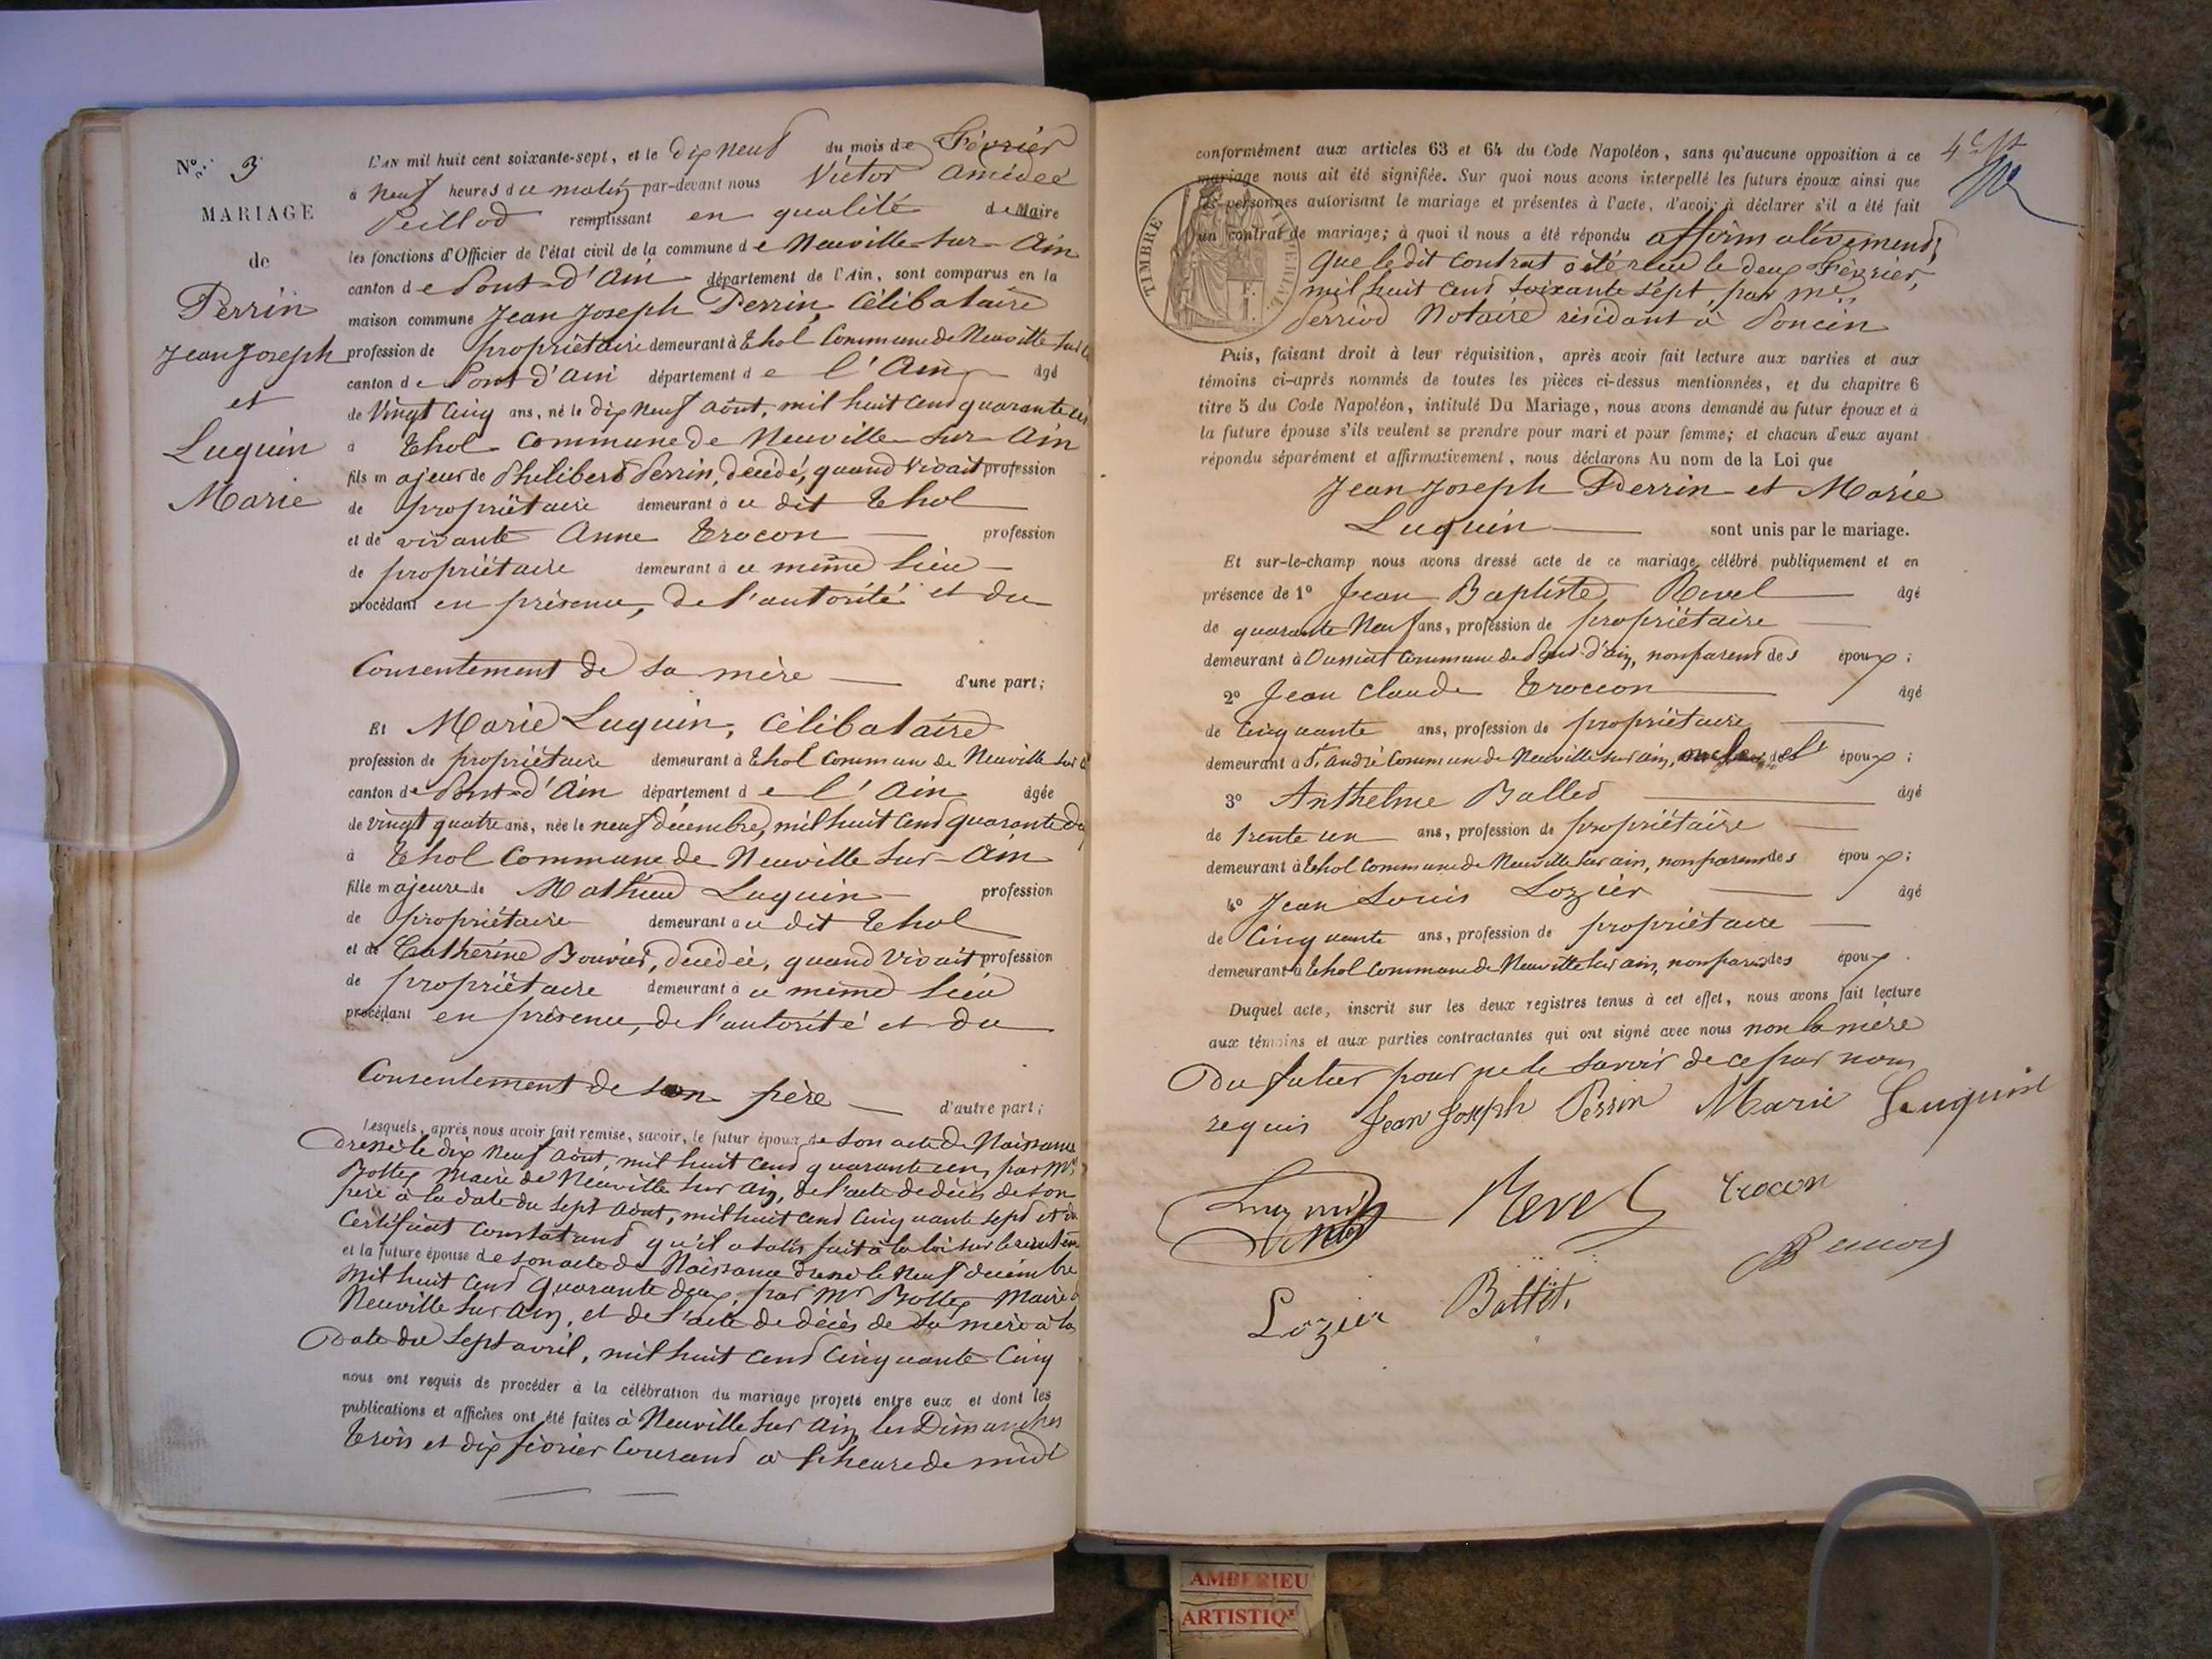 N° 3
MARIAGE
de
Perrin
Jean Joseph
et
Luquin
Marie
L'AN mil huit cent soixante-sept, et le dix neuf du mois de Février
à neuf heures du matin par-devant nous Victor Amédée
Peillod remplissant en qualité de Maire
les fonctions d'Officier de l'état civil de la commune de Neuville sur Ain
canton de Pont d'Ain département de l'Ain, sont comparus en la
maison commune Jean Joseph Perrin, Célibataire
profession de propriétaire demeurant à Thol Commune de Neuville sur
canton de Pont d'Ain département de l'Ain âgé
de Vingt Cinq ans, né le dix neuf août, mil huit cent quarante un
à Thol Commune de Neuville sur Ain
fils majeur de Philibert Perrin, décédé, quand vivait profession
de propriétaire demeurant à ce dit Thol
et de vivante Anne Trocon profession
de propriétaire demeurant à ce même lieu
procédant en présence, de l'autorité et du
Consentement de sa mère d'une part;
Et Marie Luquin, Célibataire
profession de propriétaire demeurant à Thol Commune de Neuville sur
canton de Pont d'Ain département de l'Ain âgée
de vingt quatre ans, née le neuf décembre, mil huit cent quarante
à Thol Commune de Neuville sur Ain
fille majeure de Mathieu Luquin profession
de propriétaire demeurant à ce dit Thol
et de Catherine Bouvier, décédée, quand vivait profession
de propriétaire demeurant à ce même lieu
procédant en présence, de l'autorité et du
Consentement de son père d'autre part;
Lesquels, après nous avoir fait remise, savoir, le futur époux de son acte de Naissance
dressé le dix neuf août, mil huit cent quarante un, par Mr
Bottex Maire de Neuville sur Ain, de l'acte de décès de son
père à la date du sept août, mil huit cent cinquante sept et du
Certificat constatant qu'il a satisfait à la loi sur le
et la future épouse de son acte de Naissance dressé le neuf décembre
mil huit cent quarante deux, par Mr Bottex Maire
Neuville sur Ain, et de l'acte de décès de sa mère à la
Date du sept avril, mil huit cent cinquante cinq
nous ont requis de procéder à la célébration du mariage projeté entre eux et dont les
publications et affiches ont été faites à Neuville sur Ain les Dimanches
trois et dix février courant à l'heure de midi
conformément aux articles 63 et 64 du Code Napoléon, sans qu'aucune opposition à ce
mariage nous ait été signifiée. Sur quoi nous avons interpellé les futurs époux ainsi que
les personnes autorisant le mariage et présentes à l'acte, d'avoir à déclarer s'il a été fait
un contrat de mariage; à quoi il nous a été répondu affirmativement,
TIMBRE IMPÉRIAL
que le dit contrat a été reçu le deux Février,
mil huit cent soixante sept, par me
Perriod Notaire résidant à Poncin
Puis, faisant droit à leur réquisition, après avoir fait lecture aux parties et aux
témoins ci-après nommés de toutes les pièces ci-dessus mentionnées, et du chapitre 6
titre 5 du Code Napoléon, intitulé Du Mariage, nous avons demandé au futur époux et à
la future épouse s'ils veulent se prendre pour mari et pour femme; et chacun d'eux ayant
répondu séparément et affirmativement, nous déclarons Au nom de la Loi que
Jean Joseph Perrin et Marie
Luquin sont unis par le mariage.
Et sur-le-champ nous avons dressé acte de ce mariage, célébré publiquement et en
présence de 1° Jean Baptiste Revel âgé
de quarante Neuf ans, profession de propriétaire
demeurant à Oussiat Commune de Pont d'ain, non parent des époux;
2° Jean Claude Trocon âgé
de Cinquante ans, profession de propriétaire
demeurant à St André Commune de Neuville sur ain, époux;
3° Anthelme Ballet âgé
de trente un ans, profession de propriétaire
demeurant à Thol Commune de Neuville sur ain, non parent des époux;
4° Jean Louis Lozier âgé
de Cinquante ans, profession de propriétaire
demeurant à Thol Commune de Neuville sur ain, non parent des époux.
Duquel acte, inscrit sur les deux registres tenus à cet effet, nous avons fait lecture
aux témoins et aux parties contractantes qui ont signé avec nous non la mère
Du futur pour ne le savoir de ce par nous
requis Jean Joseph Perrin Marie Luquin
Luquin Revel Trocon
Lozier Ballet
AMBERIEU
ARTISTIQ